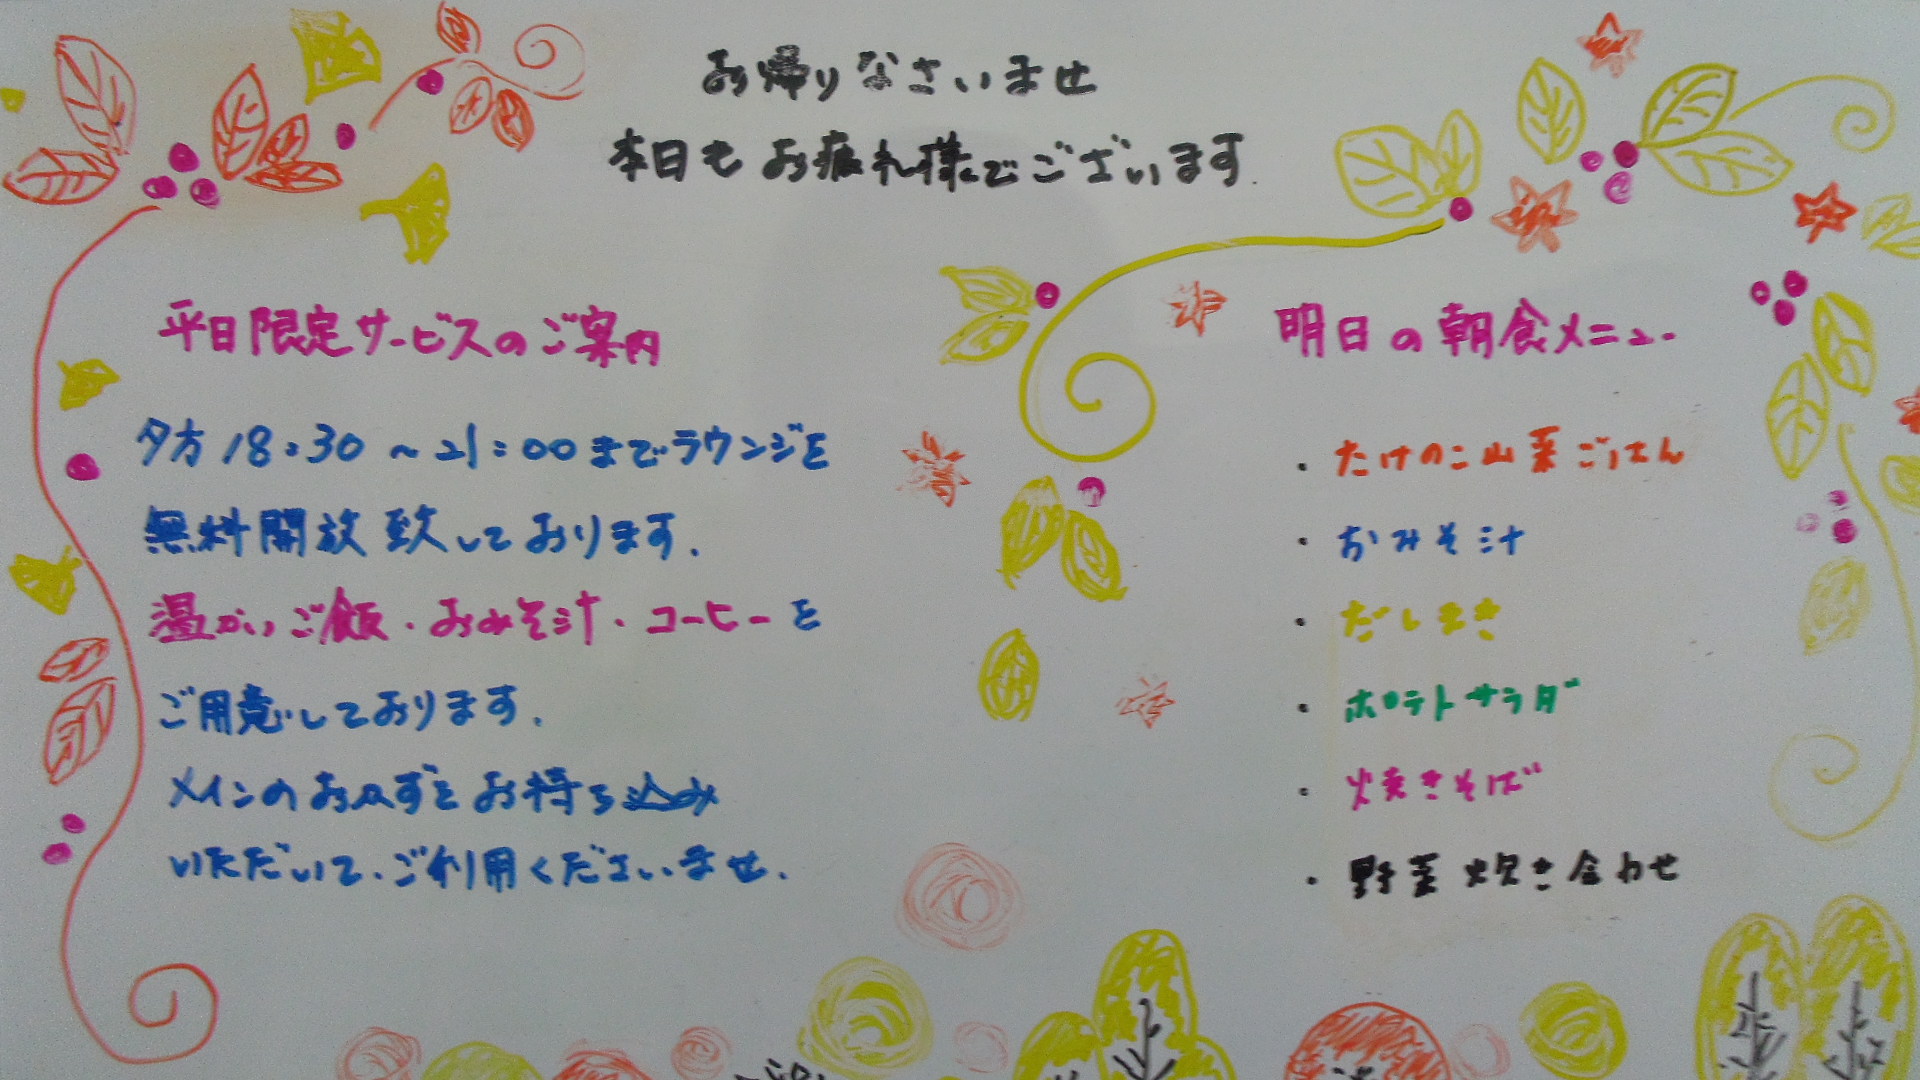 お帰りなさいませ
本日もお疲れ様でございます.
平日限定サービスのご案内
夕方18:30～21:00までラウンジを
無料開放致しております.
温かいご飯・おみそ汁・コーヒーを
ご用意しております.
メインのおかずをお持ち込み
いただいて、ご利用くださいませ.
明日の朝食メニュー
・たけのこ山菜ごはん
・おみそ汁
・だしまき
・ポテトサラダ
・焼きそば
・野菜炊き合わせ